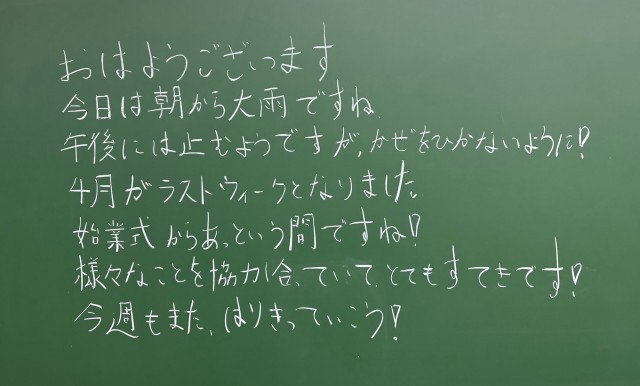 おはようございます
今日は朝から大雨ですね.
午後には止むようですが,かぜをひかないように!
4月がラストウィークとなりました.
始業式からあっという間ですね!
様々なことを協力し合っていて,とてもすてきです!
今週もまた,はりきっていこう!